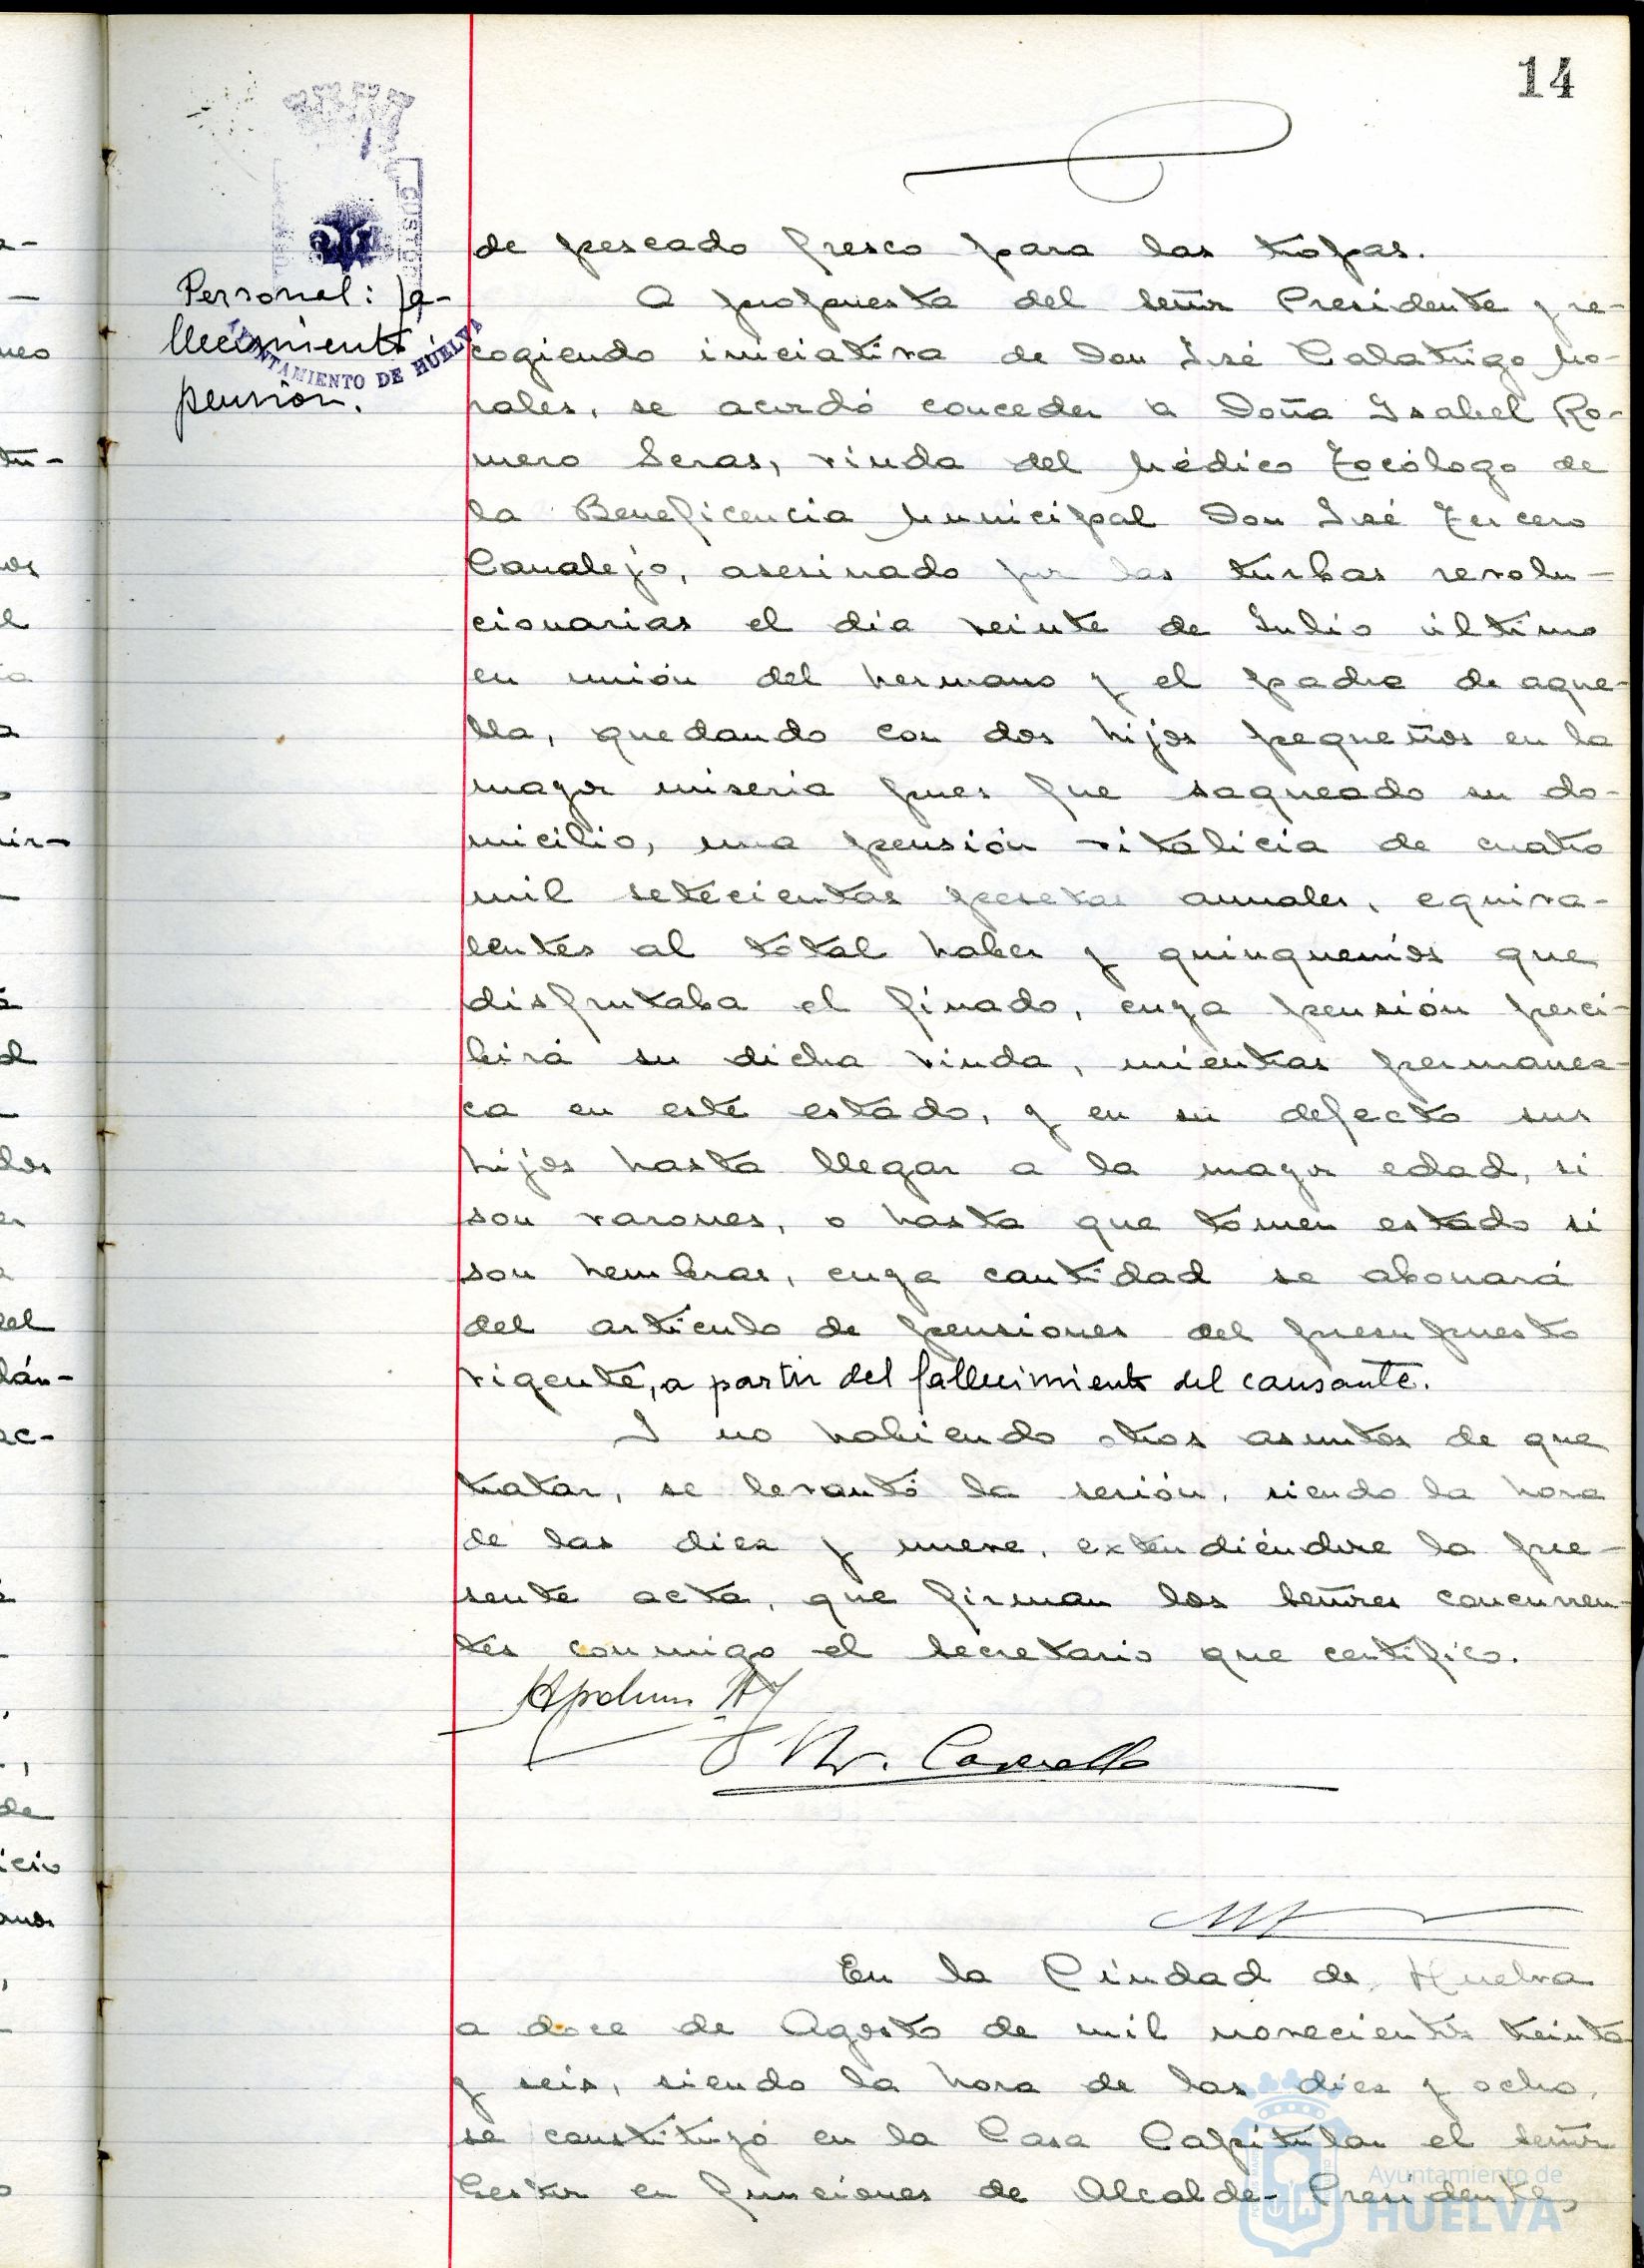 14
de pescado fresco para las tropas.
Personal: fa-
llecimiento
pensión.
AYUNTAMIENTO DE HUELVA
A propuesta del Señor Presidente y re-
cogiendo iniciativa de Don José Calatrigo Mo-
rales, se acordó conceder a Doña Isabel Ro-
mero Seras, viuda del Médico Tocólogo de
la Beneficencia Municipal Don José Tercero
Canalejo, asesinado por las turbas revolu-
cionarias el día veinte de Julio último
en unión del hermano y el padre de aque-
lla, quedando con dos hijos pequeños en la
mayor miseria pues fue saqueado su do-
micilio, una pensión vitalicia de cuatro
mil setecientas pesetas anuales, equiva-
lentes al total haber y quinquenios que
disfrutaba el finado, cuya pensión perci-
birá su dicha viuda, mientras permanez-
ca en este estado, y en su defecto sus
hijos hasta llegar a la mayor edad, si
son varones, o hasta que tomen estado si
son hembras, cuya cantidad se abonará
del artículo de pensiones del presupuesto
vigente, a partir del fallecimiento del causante.
Y no habiendo otros asuntos de que
tratar, se levantó la sesión, siendo la hora
de las diez y nueve, extendiéndose la pre-
sente acta, que firman los Señores concurren-
tes conmigo el Secretario que certifico.
En la Ciudad de Huelva
a doce de Agosto de mil novecientos treinta
y seis, siendo la hora de las diez y ocho,
se constituyó en la Casa Capitular el Señor
Gestor en funciones de Alcalde-Presidente,
Ayuntamiento de
HUELVA